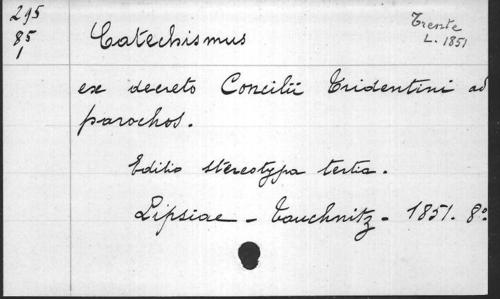 295
85
1
Catechismus
Trente
L. 1851
ex decreto Concilii Tridentini ad
parochos.
Editio stereotypa tertia.
Lipsiae - Tauchnitz - 1851. 8º